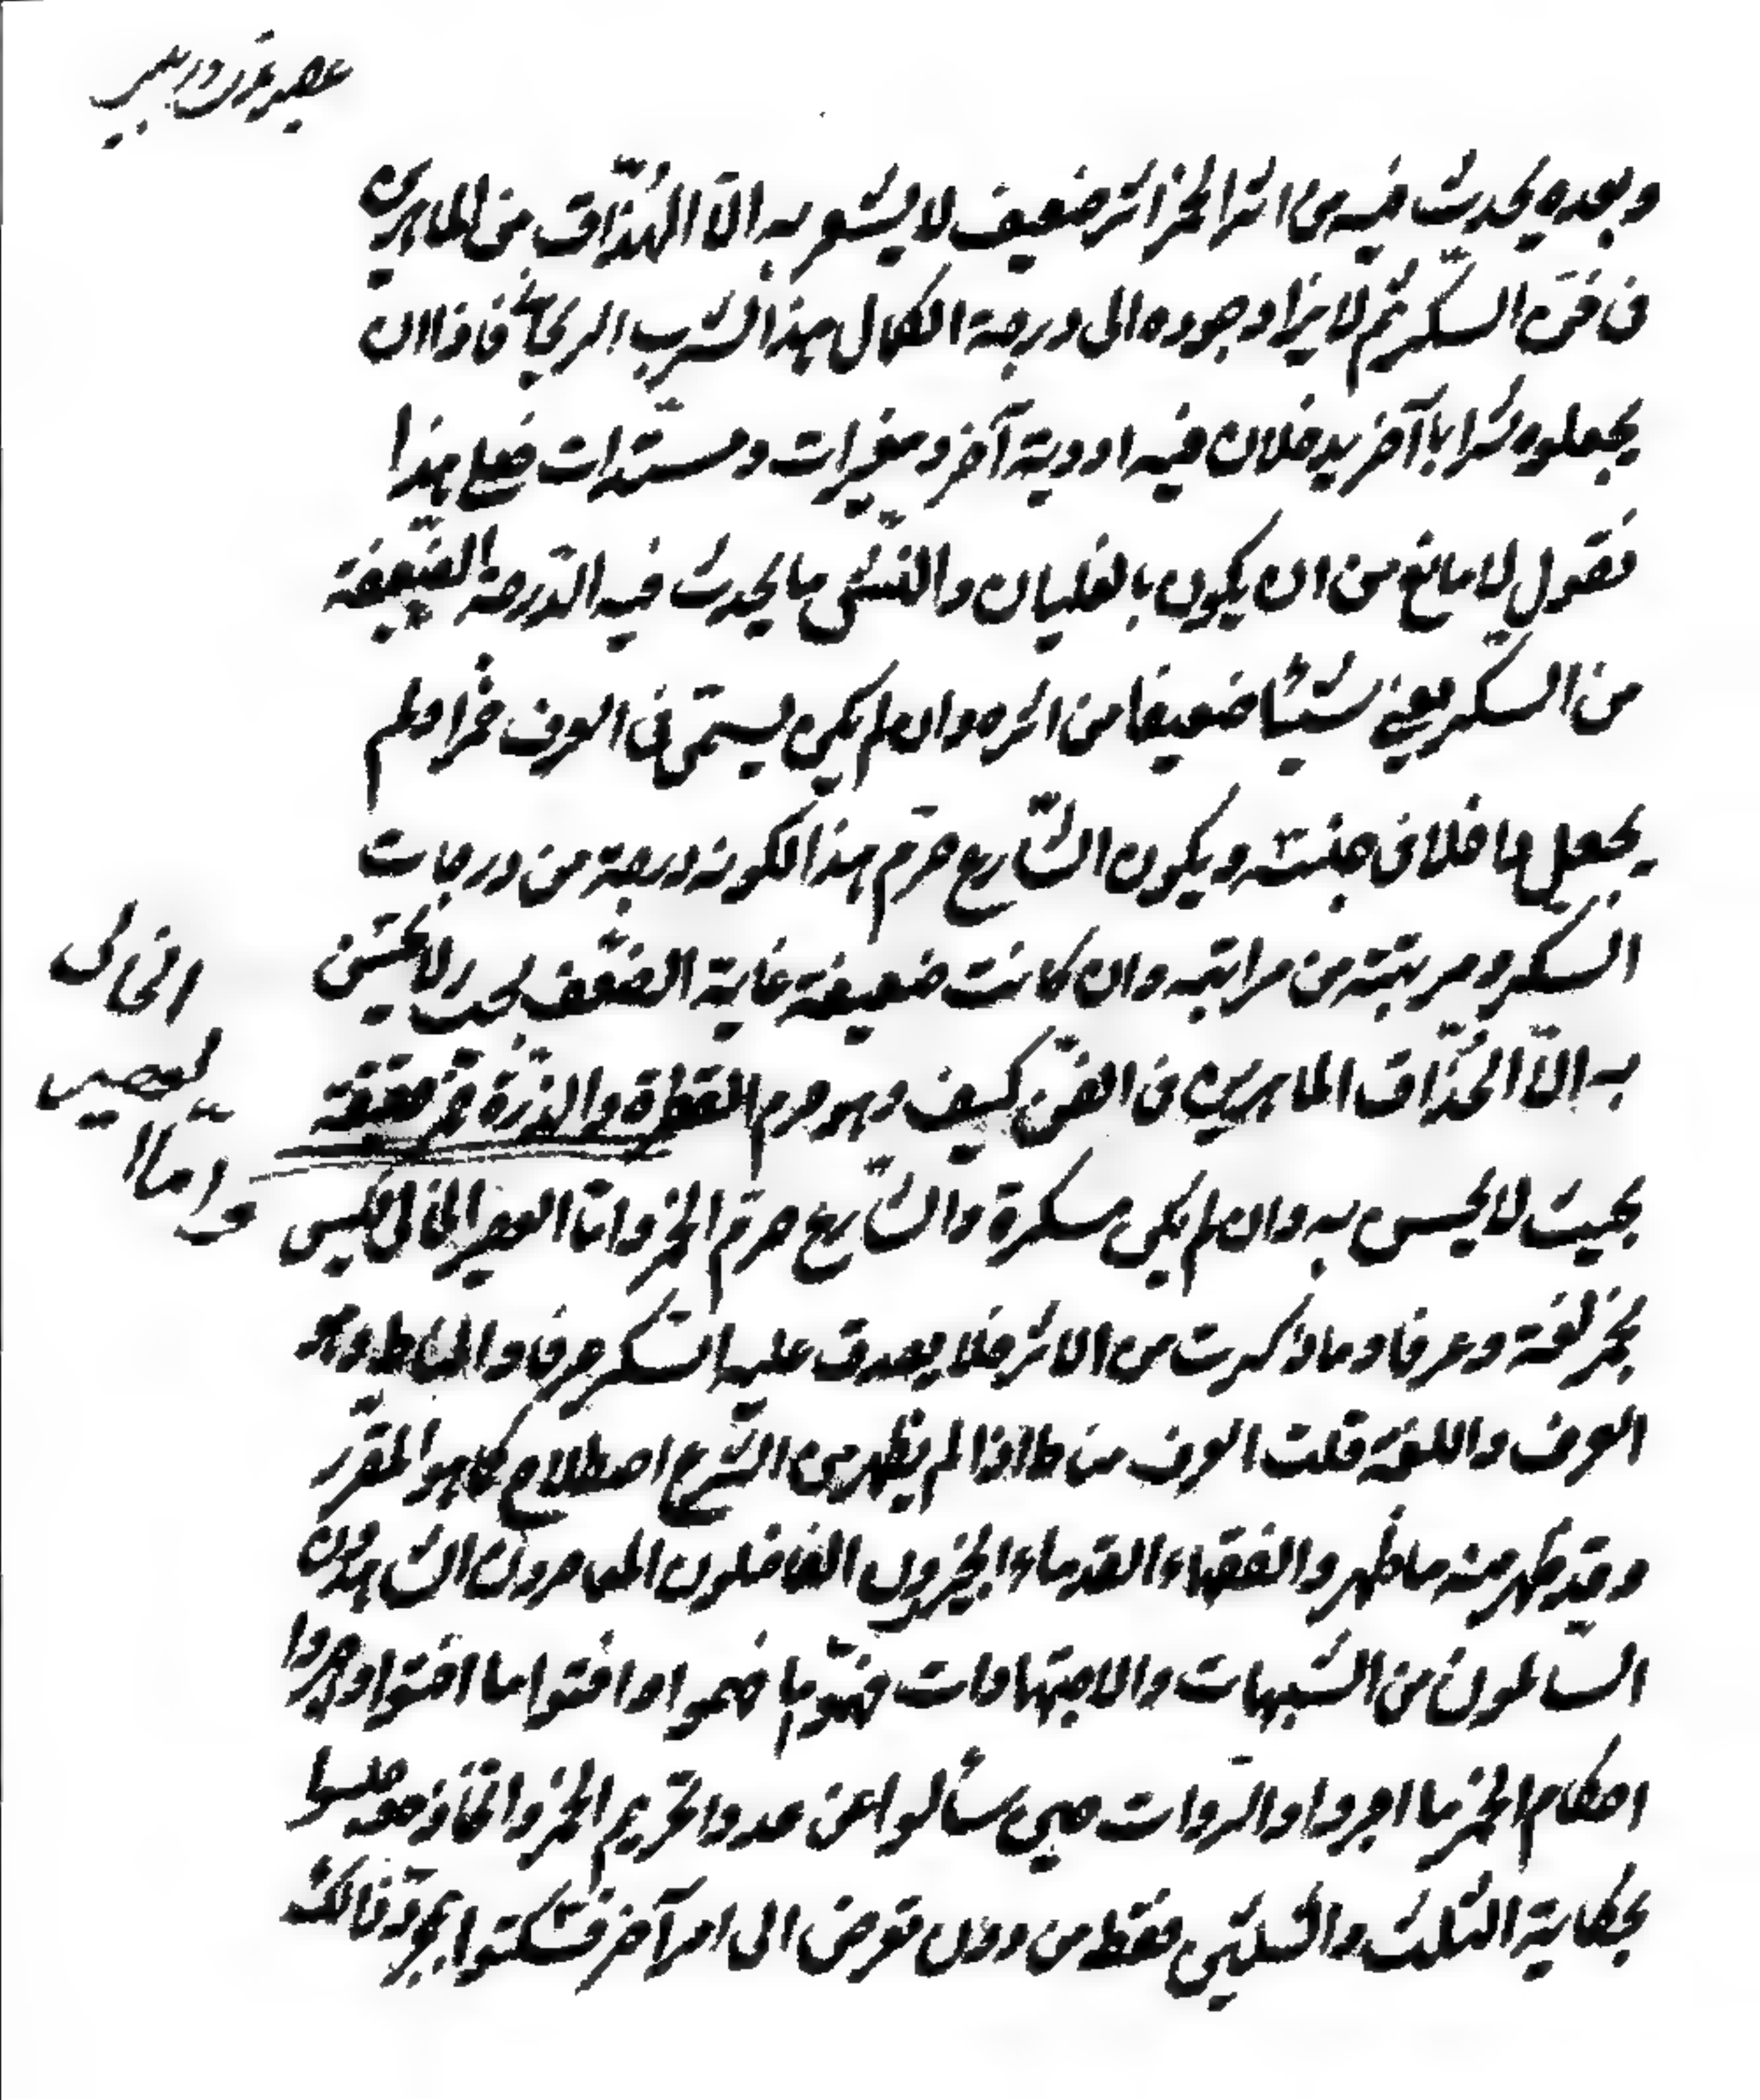 وبعده يحدث فيه من اثر الخمر اثر ضعيف لا يشعر به الّا الحُذّاق من الماهرين
فى فنّ السكر ثم لا يزاد وجوده الى درجة الكمال بهذا الشرب فاذا ان
يجعلوه شرابا آخر يدخلان فيه ادوية آخر و مغيرات و فعلى هذا
فنقول لا مانع من ان يكون بالغليان والنشّى ما يحدث فيه الدّرجة الضّعيفة
من السكر يعنى شيئا ضعيفا من الخمره وان لم يكن يسمّى فى العرف خمرا ولم
يجعل داخلا فى ويكون الشّارع حرّم هذا لكونه درجة من درجات
السكر ومرتبته من مراتبه وان كانت ضعيفة غاية الضّعف بحيث لا يحسّ
به الّا الحُذّاق الماهرين فى الفنّ كيف وهو حرم القطرة والذرّة
بحيث لا يحس به وان لم يكن مسكرة والشّارع حرّم الخمر وامّا العصير الخالى فليس
بخمر لغة وعرفا وما ذكرت من الاثر فلا يصدق عليه السّكر عرفا والمناط هو
العرف واللغة قلت العرف مناط اذا لم يظهر من الشّرع اصطلاح كما هو المقرّر
وقد ظهر منه ما ظهر والفقهاء القدماء الخبيرون الفاضلون المعاصرون الشاهدون
السالمون من الشبهات والاجتهادات فهموا ما فهموا وافتوا ما افتوا واجروا
احكام الخمر ما اجروا والرّوات حين سألوا عن حدود تحريم الخمر
بحكاية الثلث والثلثين فقط من دون تعرض الى امر آخر فسكتوا بمجرّد ذلك
الخالى
العصير
وامّا